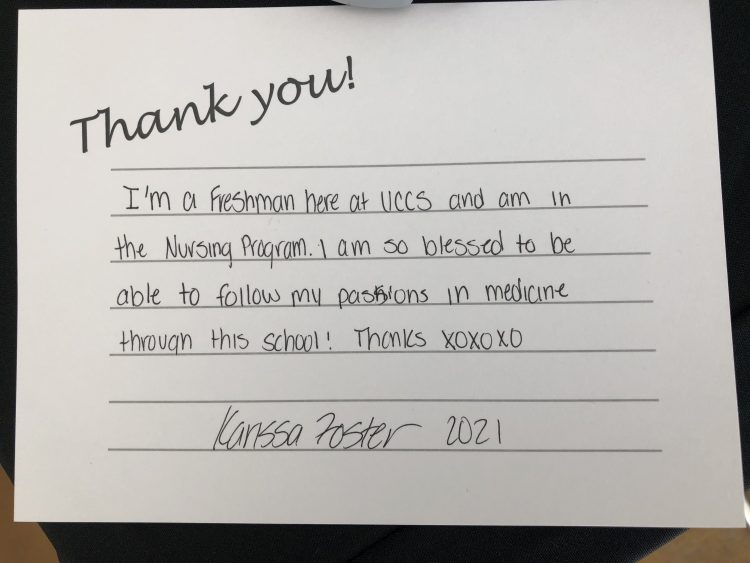 Thank you!
I'm a Freshman here at UCCS and am in
the Nursing Program. I am so blessed to be
able to follow my passions in medicine
through this school! Thanks XOXOXO
Karissa Foster 2021